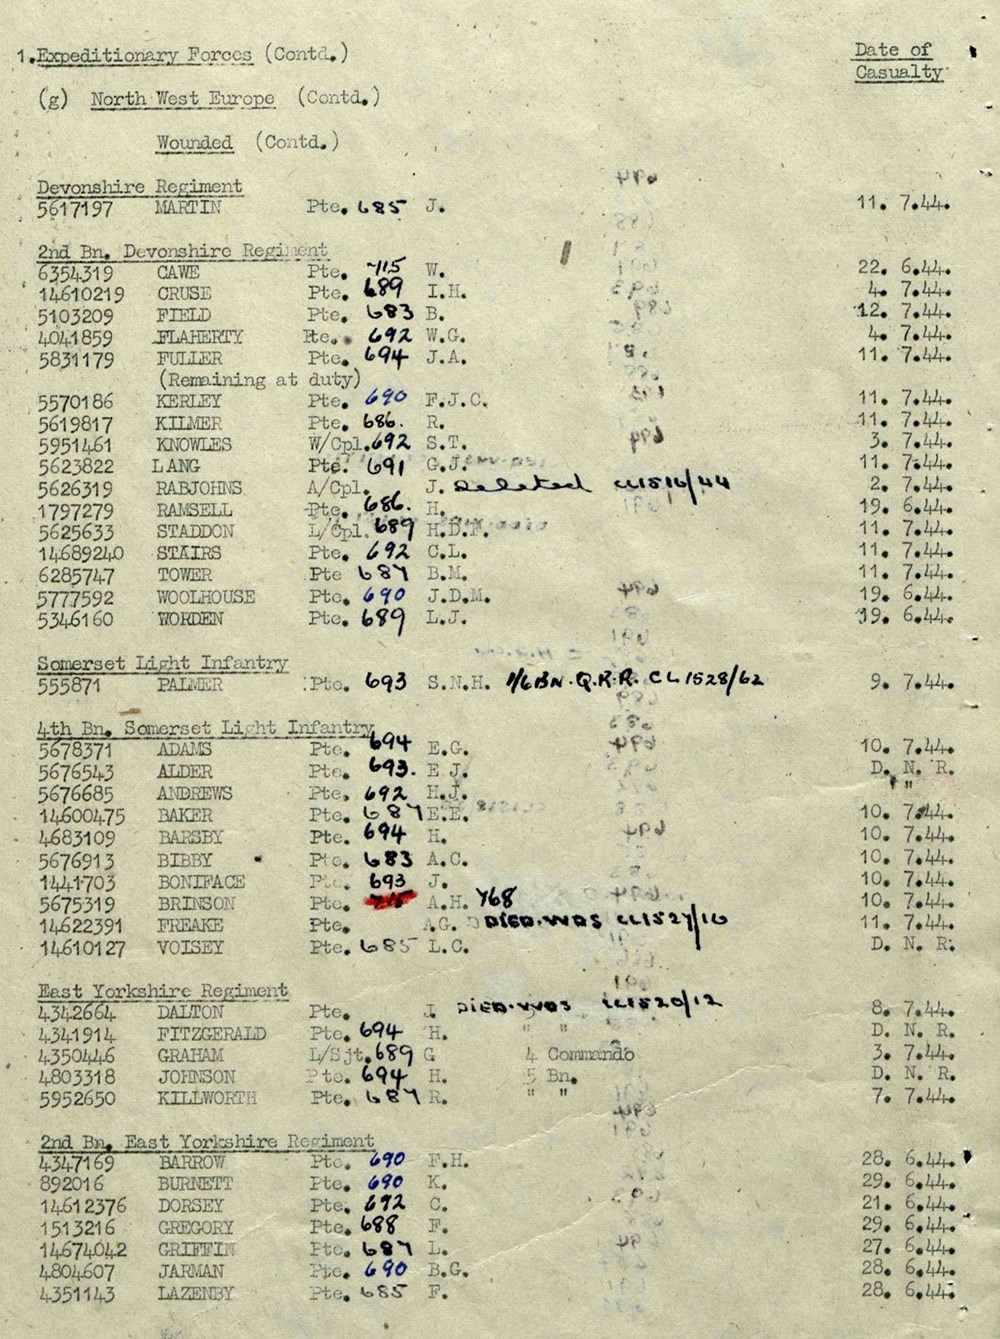 1. Expeditionary Forces (Contd.) Date of
Casualty
(g) North West Europe (Contd.)
Wounded (Contd.)
Devonshire Regiment
5617197 MARTIN Pte. 685 J. 11. 7.44.
2nd Bn. Devonshire Regiment
6354319 CAWE Pte. 715 W. 22. 6.44.
14610219 CRUSE Pte. 689 I.H. 4. 7.44.
5103209 FIELD Pte. 683 B. 12. 7.44.
4041859 FLAHERTY Pte. 692 W.G. 4. 7.44.
5831179 FULLER Pte. 694 J.A. 11. 7.44.
(Remaining at duty)
5570186 KERLEY Pte. 690 F.J.C. 11. 7.44.
5619817 KILMER Pte. 686. R. 11. 7.44.
5951461 KNOWLES W/Cpl. 692 S.T. 3. 7.44.
5623822 LANG Pte. 691 G.J. 11. 7.44.
5626319 RABJOHNS A/Cpl. J. Deleted CL1516/44 2. 7.44.
1797279 RAMSELL Pte. 686. H. 19. 6.44.
5625633 STADDON L/Cpl. 689 H.D.F. 11. 7.44.
14689240 STAIRS Pte. 692 C.L. 11. 7.44.
6285747 TOWER Pte 687 B.M. 11. 7.44.
5777592 WOOLHOUSE Pte. 690 J.D.M. 19. 6.44.
5346160 WORDEN Pte. 689 L.J. 19. 6.44.
Somerset Light Infantry
555871 PALMER Pte. 693 S.N.H. 1/6 BN. Q.R.R. CL1528/62 9. 7.44.
4th Bn. Somerset Light Infantry
5678371 ADAMS Pte. 694 E.G. 10. 7.44.
5676543 ALDER Pte. 693. E J. D. N. R.
5676685 ANDREWS Pte. 692 H.J. " "
14600475 BAKER Pte. 687 E.E. 10. 7.44.
4683109 BARSBY Pte. 694 H. 10. 7.44.
5676913 BIBBY Pte. 683 A.C. 10. 7.44.
1441703 BONIFACE Pte. 693 J. 10. 7.44.
5675319 BRINSON Pte. A.H. 768 10. 7.44.
14622391 FREAKE Pte. A.G. DIED.WDS CL1527/10 11. 7.44.
14610127 VOISEY Pte. 685 L.C. D. N. R.
East Yorkshire Regiment
4342664 DALTON Pte. J. DIED.WDS CL1520/12 8. 7.44.
4341914 FITZGERALD Pte. 694 H. " " D. N. R.
4350446 GRAHAM L/Sjt. 689 G 4 Commando 3. 7.44.
4803318 JOHNSON Pte. 694 H. 5 Bn. D. N. R.
5952650 KILLWORTH Pte. 687 R. " " 7. 7.44.
2nd Bn. East Yorkshire Regiment
4347169 BARROW Pte. 690 F.H. 28. 6.44.
892016 BURNETT Pte. 690 K. 29. 6.44.
14612376 DORSEY Pte. 692 C. 21. 6.44.
1513216 GREGORY Pte. 688 F. 29. 6.44.
14674042 GRIFFIN Pte. 687 L. 27. 6.44.
4804607 JARMAN Pte. 690 B.G. 28. 6.44.
4351143 LAZENBY Pte. 685 F. 28. 6.44.